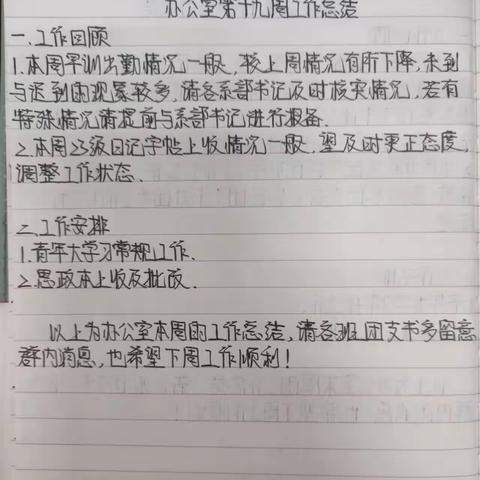 办公室第十九周工作总结
一.工作回顾
1.本周早训出勤情况一般,较上周情况有所下降,未到
与迟到的现象较多,请各系部书记及时核实情况,若有
特殊情况请提前与系部书记进行报备.
2.本周23级日记字帖上收情况一般,望及时更正态度,
调整工作状态.
二.工作安排
1.青年大学习常规工作.
2.思政本上收及批改.
以上为办公室本周的工作总结,请各班团支书多留意
群内消息,也希望下周工作顺利!